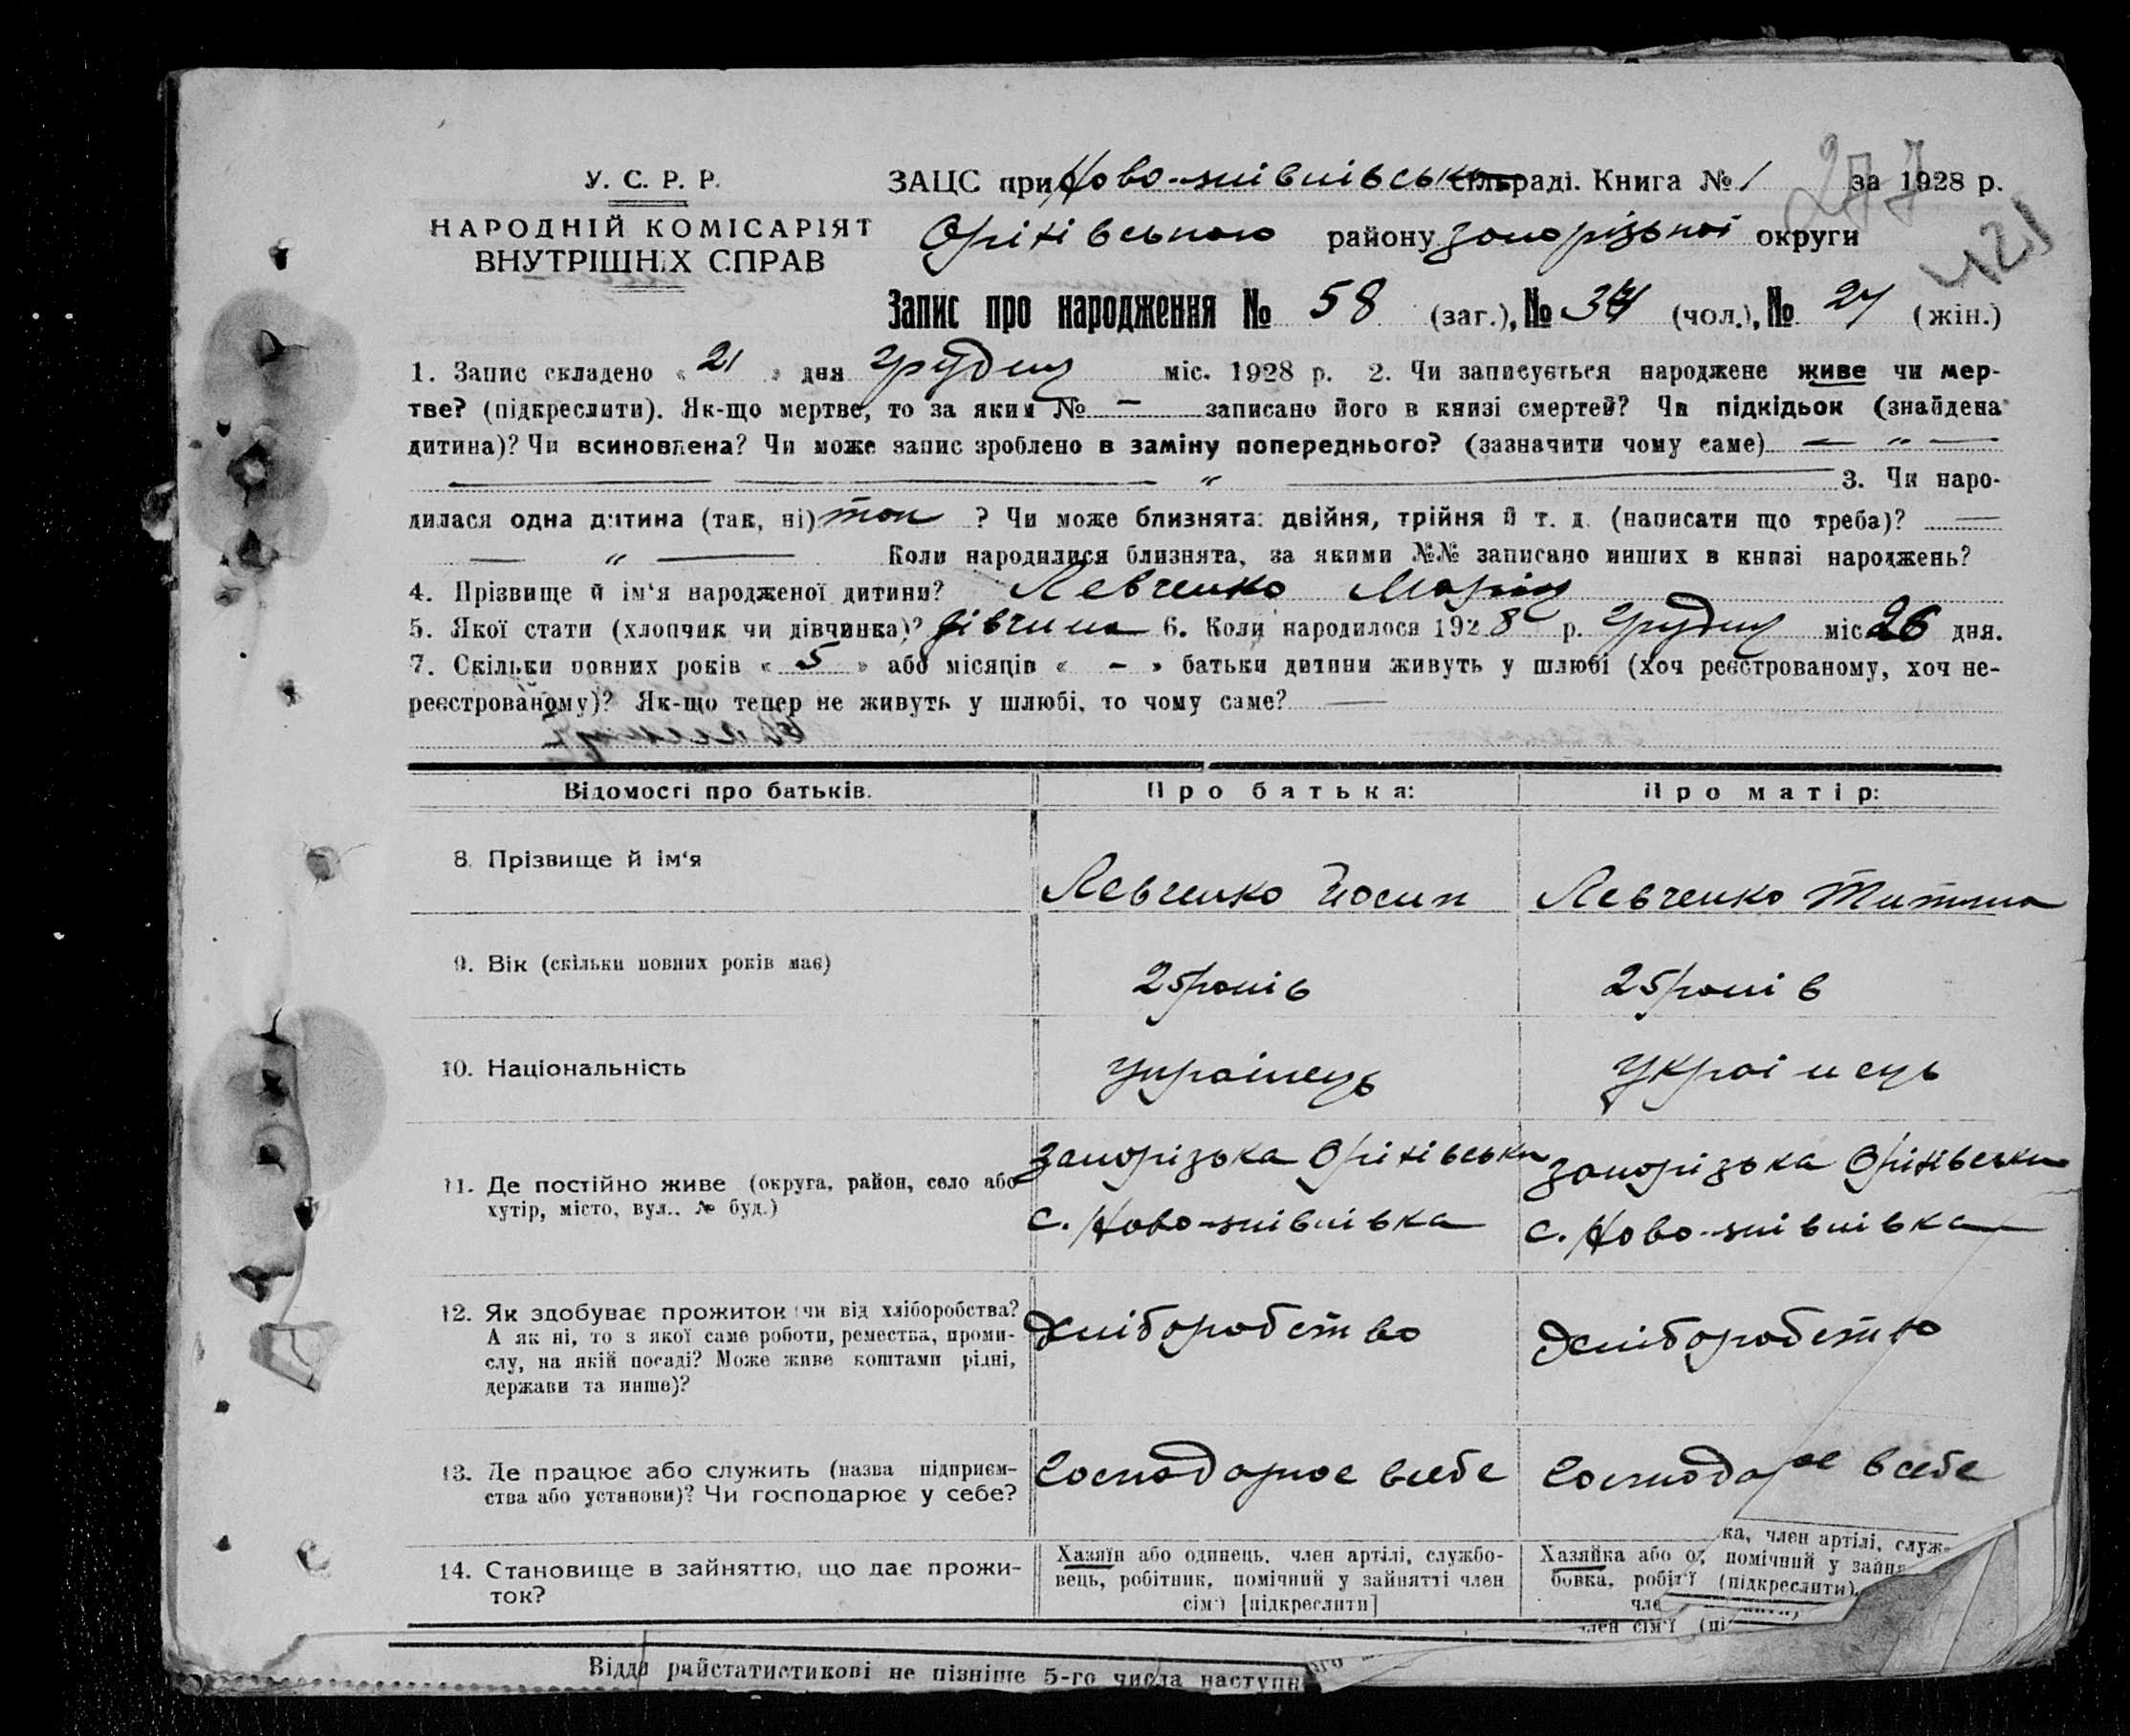 277
421
У. С. Р. Р.
НАРОДНІЙ КОМІСАРІЯТ
ВНУТРІШНІХ СПРАВ
ЗАЦС при Ново-иівнівська сільраді. Книга № 1 за 1928 р.
Оріхівського району Запорізької округи
Запис про народження № 58 (заг.), № (чол.), № 27 (жін.)
1. Запис складено « 21 » дня Грудня міс. 1928 р. 2. Чи записується народжене живе чи мер-
тве? (підкреслити). Як-що мертве, то за яким № — записано його в книзі смертей? Чи підкідьок (знайдена
дитина)? Чи всиновлена? Чи може запис зроблено в заміну попереднього? (зазначити чому саме) — „ —
— — „ — 3. Чи наро-
дилася одна дитина (так, ні) так ? Чи може близнята: двійня, трійня й т. д. (написати що треба)? —
— „ — Коли народилися близнята, за якими №№ записано инших в книзі народжень?
4. Прізвище й ім‘я народженої дитини? Левченко Марія
5. Якої стати (хлопчик чи дівчинка)? дівчина 6. Коли народилося 1928 р. Грудня міс. 26 дня.
7. Скільки повних років « 5 » або місяців « - » батьки дитини живуть у шлюбі (хоч реєстрованому, хоч не-
реєстрованому)? Як-що тепер не живуть у шлюбі, то чому саме? —
Відомості про батьків. Про батька: Про матір:
8. Прізвище й ім‘я Левченко Йосип Левченко Титяна
9. Вік (скільки повних років має) 25 років 25 років
10. Національність Українець Українець
11. Де постійно живе (округа, район, село або Запорізька Оріхівськи Запорізька Оріхівськи
хутір, місто, вул., № буд.) с. Ново-иівнівка с. Ново-иівнівка
12. Як здобуває прожиток (чи від хліборобства? Хліборобство Хліборобство
А як ні, то з якої саме роботи, ремества, проми-
слу, на якій посаді? Може живе коштами рідні,
держави та инше)?
13. Де працює або служить (назва підприєм- Господарює всебе Господарює всебе
ства або установи)? Чи господарює у себе?
14. Становище в зайняттю, що дає прожи- Хазяїн або одинець, член артілі, службо- Хазяйка або ка, член артілі, служ-
ток? вець, робітник, помічний у зайнятті член бовка, помічний у
сім‘ї [підкреслити] (підкреслити).
член сім‘ї
райстатистикові не пізніше 5-го числа